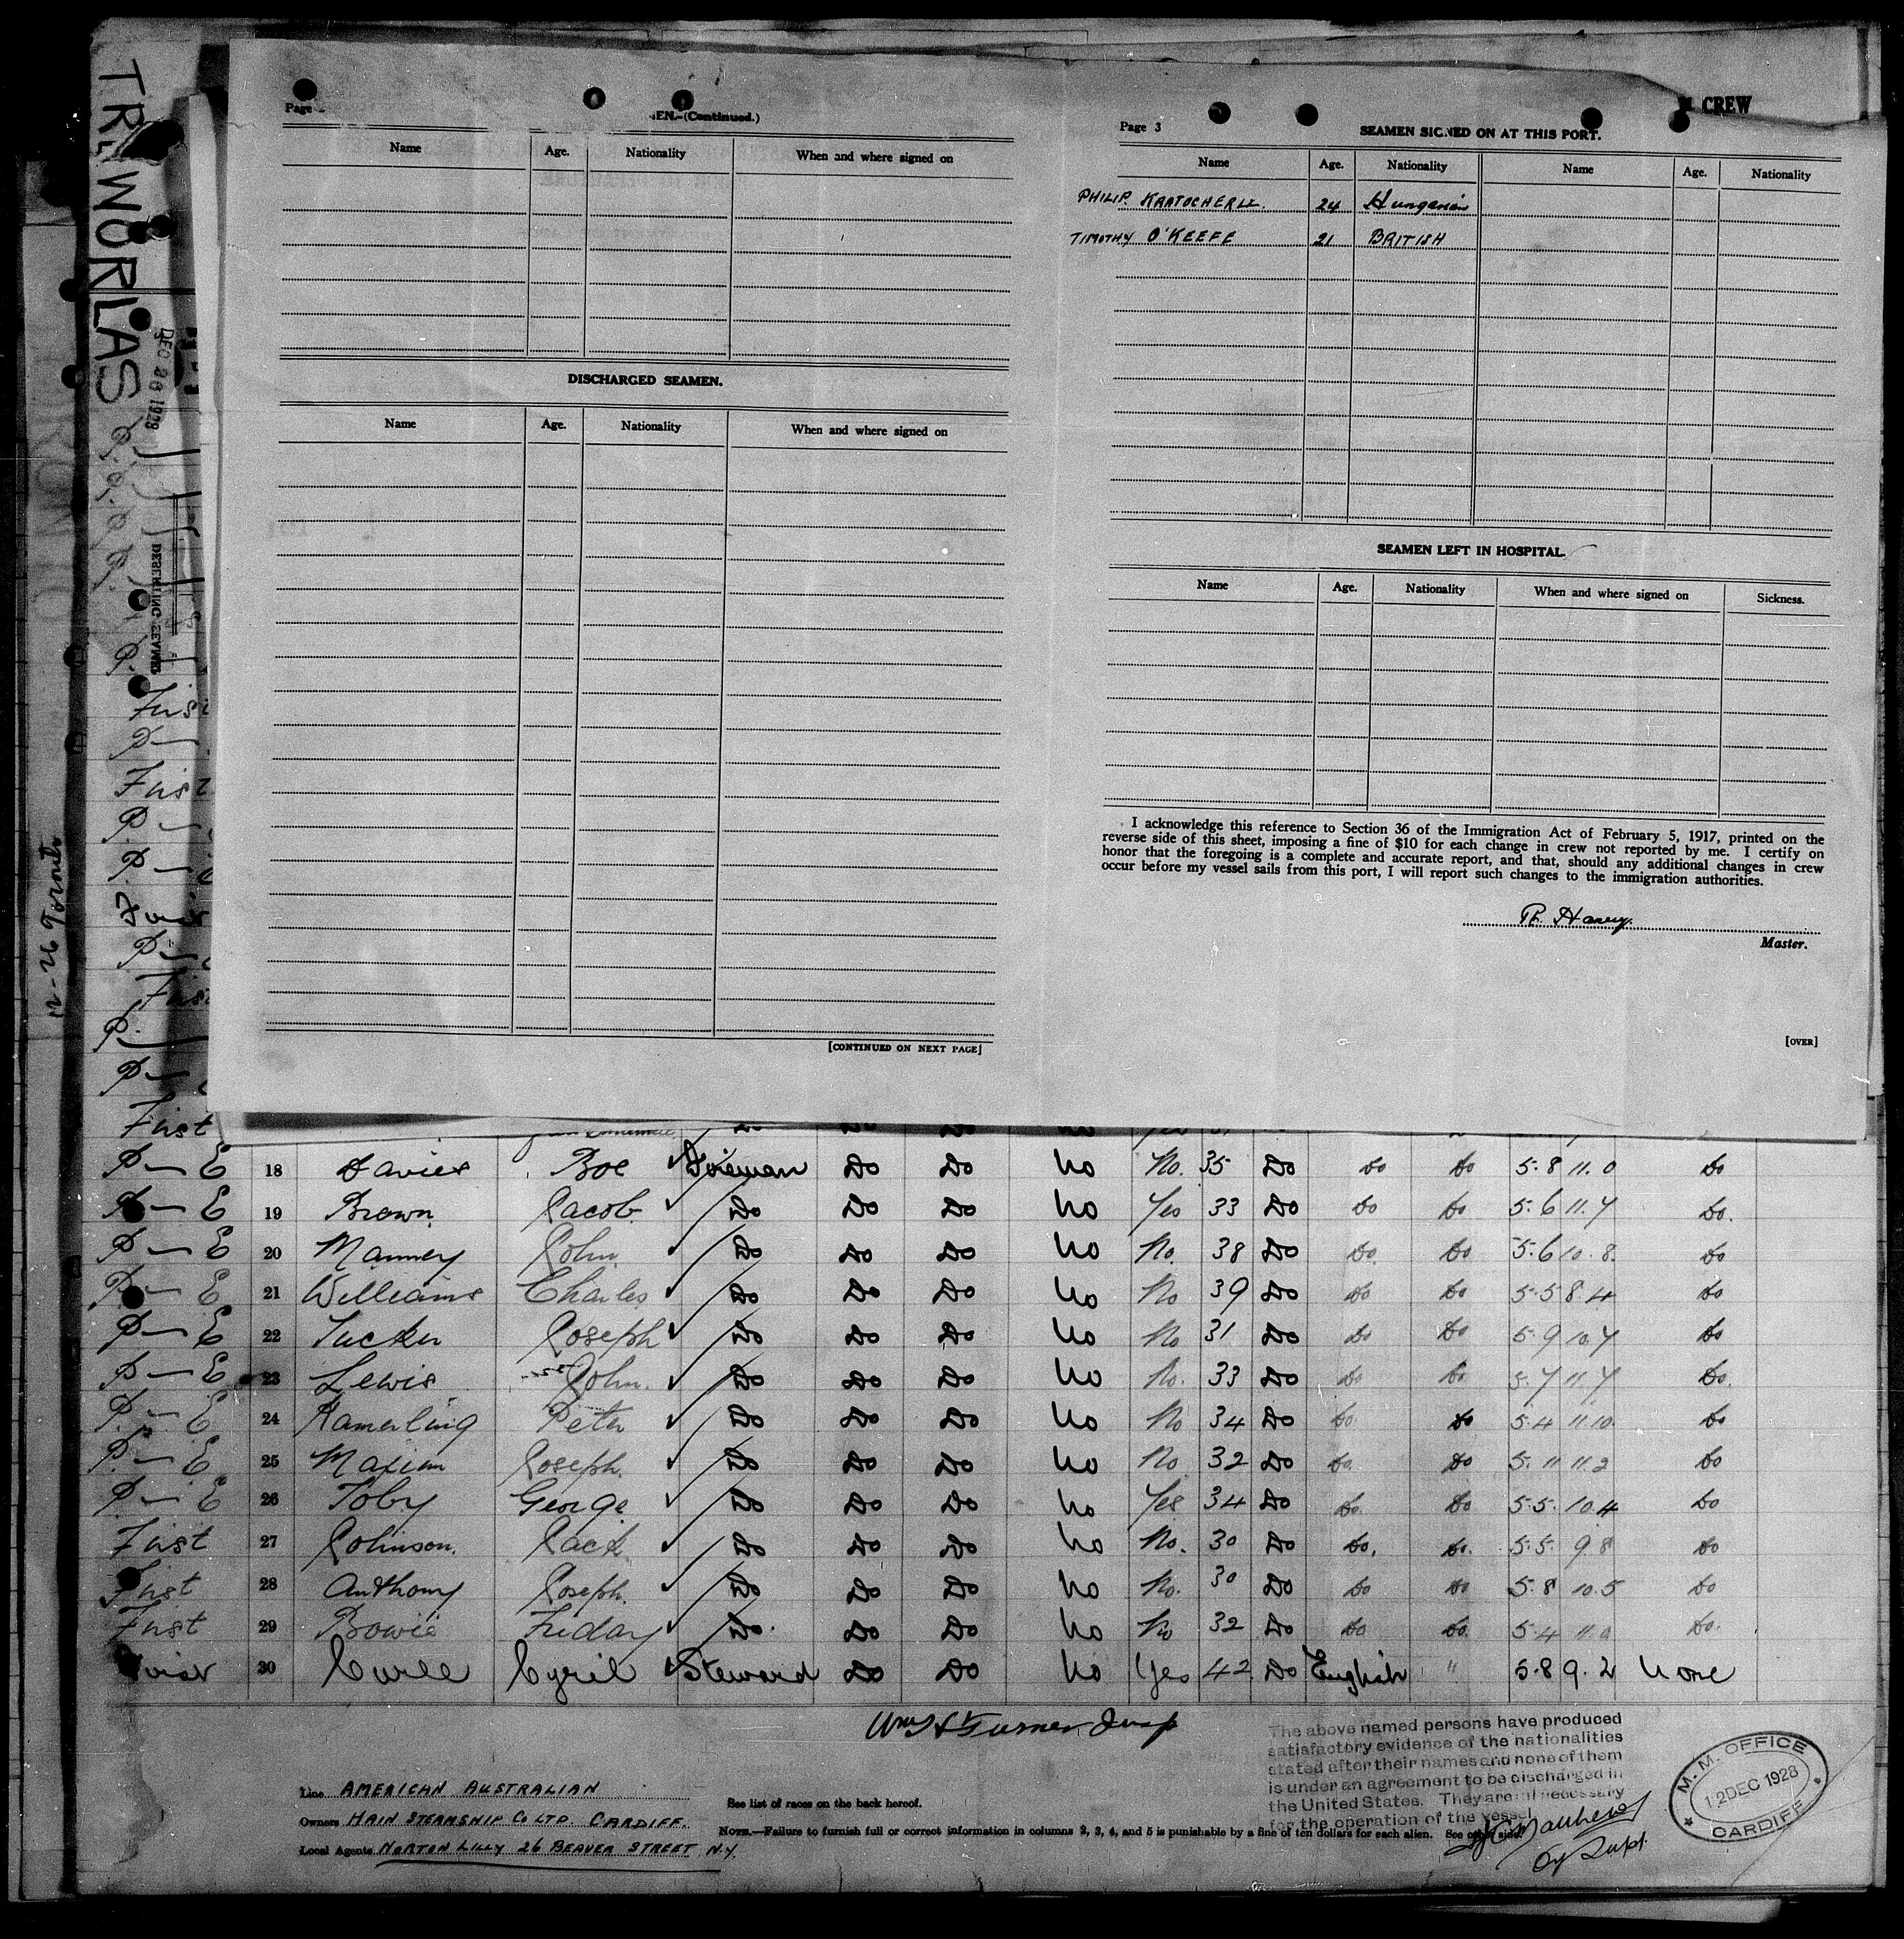 CREW
TREWORLAS
DEC 26 1928
DESERTING SEAMEN
12-26 Toronto
Page
EN.-(Continued.)
Name Age. Nationality When and where signed on
DISCHARGED SEAMEN.
Name Age. Nationality When and where signed on
[CONTINUED ON NEXT PAGE]
Page 3
SEAMEN SIGNED ON AT THIS PORT.
Name Age. Nationality Name Age. Nationality
PHILIP. KRATOCHERLL. 24 Hungarian
TIMOTHY O'KEEFE 21 BRITISH
SEAMEN LEFT IN HOSPITAL.
Name Age. Nationality When and where signed on Sickness.
I acknowledge this reference to Section 36 of the Immigration Act of February 5, 1917, printed on the
reverse side of this sheet, imposing a fine of $10 for each change in crew not reported by me. I certify on
honor that the foregoing is a complete and accurate report, and that, should any additional changes in crew
occur before my vessel sails from this port, I will report such changes to the immigration authorities.
Harvey.
Master.
[OVER]
First
P—E 18 Davies Boe Fireman Do Do No No. 35 Do Do Do 5.8 11.0 Do
P—E 19 Brown Jacob Do Do Do No Yes 33 Do Do Do 5.6 11.7 Do.
P—E 20 Manney John Do Do Do No No. 38 Do Do. Do 5.6 10.8. Do
P—E 21 Williams Charles Do Do Do No No 39 Do Do Do 5.5 8.4 Do
P—E 22 Tucker Joseph Do Do Do No No 31 Do Do Do 5.9 10.7 Do
P—E 23 Lewis John. Do Do Do No No. 33 Do Do Do 5.7 11.7 Do.
P—E 24 Kamerling Peter Do Do Do No No 34 Do Do. Do 5.4 11.10. Do
P—E 25 Maxim Joseph. Do Do Do No No 32 Do Do. Do 5.11 11.2 Do
P—E 26 Toby George Do Do Do No Yes 34 Do Do. Do 5.5. 10.4 Do
First 27 Johnson. Jack Do Do Do No No. 30 Do Do. Do. 5.5. 9.8 Do
First 28 Anthony Joseph. Do Do Do No No. 30 Do Do Do 5.8 10.5 Do
First 29 Bowie Friday Do. Do Do No No 32 Do Do Do. 5.4 11.0 Do.
First 30 Curle Cyril Steward Do Do No Yes 42 Do English " 5.8 9.2 None
Wm Turner Insp
The above named persons have produced
satisfactory evidence of the nationalities
stated after their names and none of them
is under an agreement to be discharged in
the United States. They are all necessary
for the operation of the vessel
M. M. OFFICE
12 DEC 1928
CARDIFF
Line AMERICAN AUSTRALIAN
Owners HAIN STEAMSHIP CO LTD. CARDIFF.
Local Agents NORTON LILLY 26 BEAVER STREET N.Y.
See list of races on the back hereof.
NOTE.—Failure to furnish full or correct information in columns 2, 3, 4, and 5 is punishable by a fine of ten dollars for each alien. See other side.